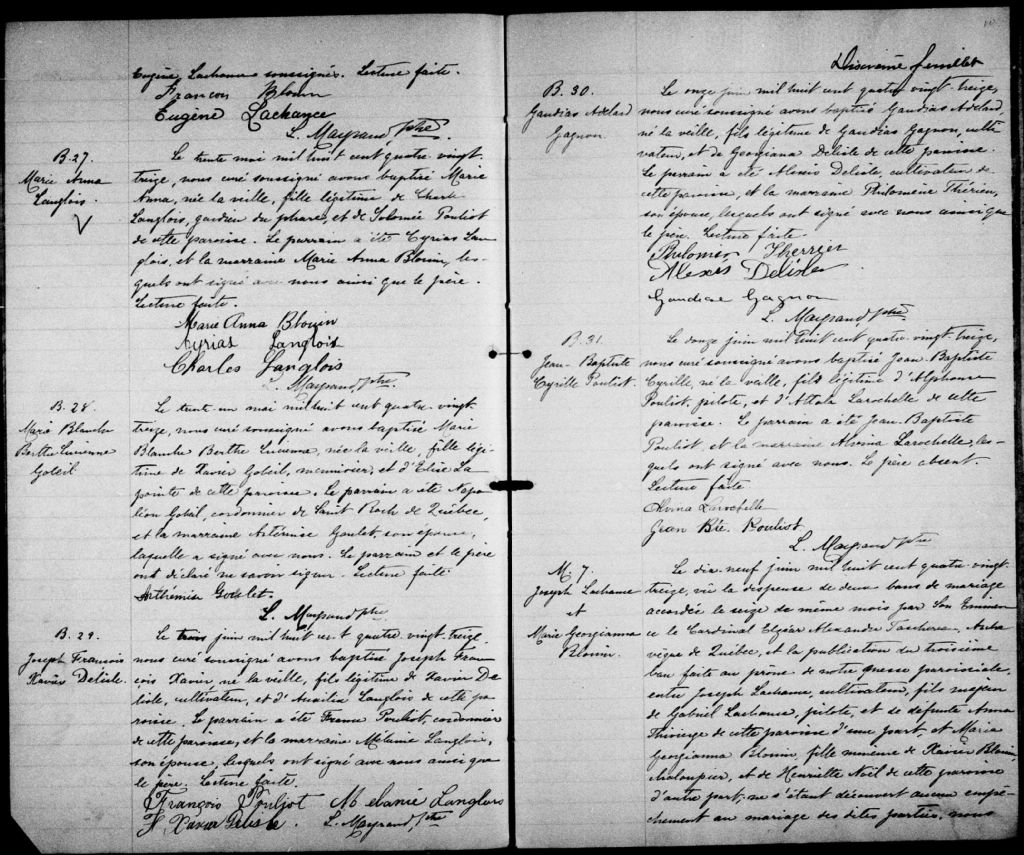 Eugène Lachance soussignés. Lecture faite.
François Blouin
Eugène Lachance
L. Mayrand ptre
B. 27.
Marie Anna
Langlois.
Le trente mai mil huit cent quatre vingt
treize, nous curé soussigné avons baptisé Marie
Anna, née la veille, fille légitime de Charles
Langlois, gardien du phare, et de Salomée Pouliot
de cette paroisse. Le parrain a été Cyrias Lan
glois, et la marraine Marie Anna Blouin, les-
quels ont signé avec nous ainsi que le père.
Lecture faite.
Marie Anna Blouin
Cyrias Langlois
Charles Langlois
L. Mayrand ptre.
B. 28.
Marie Blanche
Berthe Lucienne
Goleil
Le trent un mai mil huit cent quatre vingt
treize, nous curé soussigné avons baptisé Marie
Blanche Berthe Lucienne, née la veille, fille légi-
time de Xavier Goleil, menuisier, et d'Elise La
pointe de cette paroisse. Le parrain a été Napo
léon Gobeil, cordonnier de Saint Roch de Québec,
et la marraine Artémise Goulet, son épouse,
laquelle a signé avec nous. Le parrain et le père
ont déclaré ne savoir signer. Lecture faite
Arthemise Goulet.
L. Mayrand ptre
B. 29.
Joseph François
Xavier Delisle.
Le trois juin mil huit cent quatre vingt treize
nous curé soussigné avons baptisé Joseph Fran
çois Xavier, né la veille, fils légitime de Xavier De
lisle, cultivateur, et d'Aurélie Langlois de cette pa
roisse. Le parrain a été Pouliot, cordonnier
de cette paroisse, et la marraine Mélanie Langlois,
son épouse, lesquels ont signé avec nous ainsi que
le père. Lecture faite.
François Pouliot Melanie Langlois
F. Xavier Delisle. L. Mayrand, ptre
Dixième feuillet
B. 30.
Gaudias Adelard
Gagnon.
Le onze juin mil huit cent quatre vingt treize,
nous curé soussigné avons baptisé Gaudias Adelard
né la veille, fils légitime de Gaudias Gagnon, culti
vateur, et de Georgiana Delisle de cette paroisse.
Le parrain a été Alexis Delisle, cultivateur de
cette paroisse, et la marraine Philomène Thérien,
son épouse, lesquels ont signé avec nous ainsi que
le père. Lecture faite.
Therrien
Alexis Delisle
Gagnon
L. Mayrand ptre
B. 31.
Jean-Baptiste
Cyrille Pouliot.
Le douze juin mil huit cent quatre vingt treize,
nous curé soussigné avons baptisé Jean-Baptiste
Cyrille, né la veille, fils légitime d'Alphonse
Pouliot, pilote, et d'Attala Larochelle de cette
paroisse. Le parrain a été Jean-Baptiste
Pouliot et la marraine Alvina Larochelle, les-
quels ont signé avec nous. Le père absent.
Lecture faite
Alvina Larochelle
Jean Bte. Pouliot
L. Mayrand ptre
M. 7.
Joseph Lachance
et
Marie Georgianna
Blouin.
Le dix-neuf juin mil huit cent quatre vingt
treize, vu la dispense de deux bans de mariage
accordée le seize de même mois par Son Eminen
ce le Cardinal Elzéar Alexandre Taschereau, Arche
vêque de Québec, et la publication du troisième
ban faite au prône de notre messe paroissiale
entre Joseph Lachance, cultivateur, fils majeur
de Gabriel Lachance, pilote, et de défunte Anna
Thivierge de cette paroisse d'une part, et Marie
Georgianna Blouin, fille mineure de Xavier Blouin,
chaloupier, et de Henriette Noël de cette paroisse
d'autre part; ne s'étant découvert aucun empê-
chement au mariage des dites parties, nous